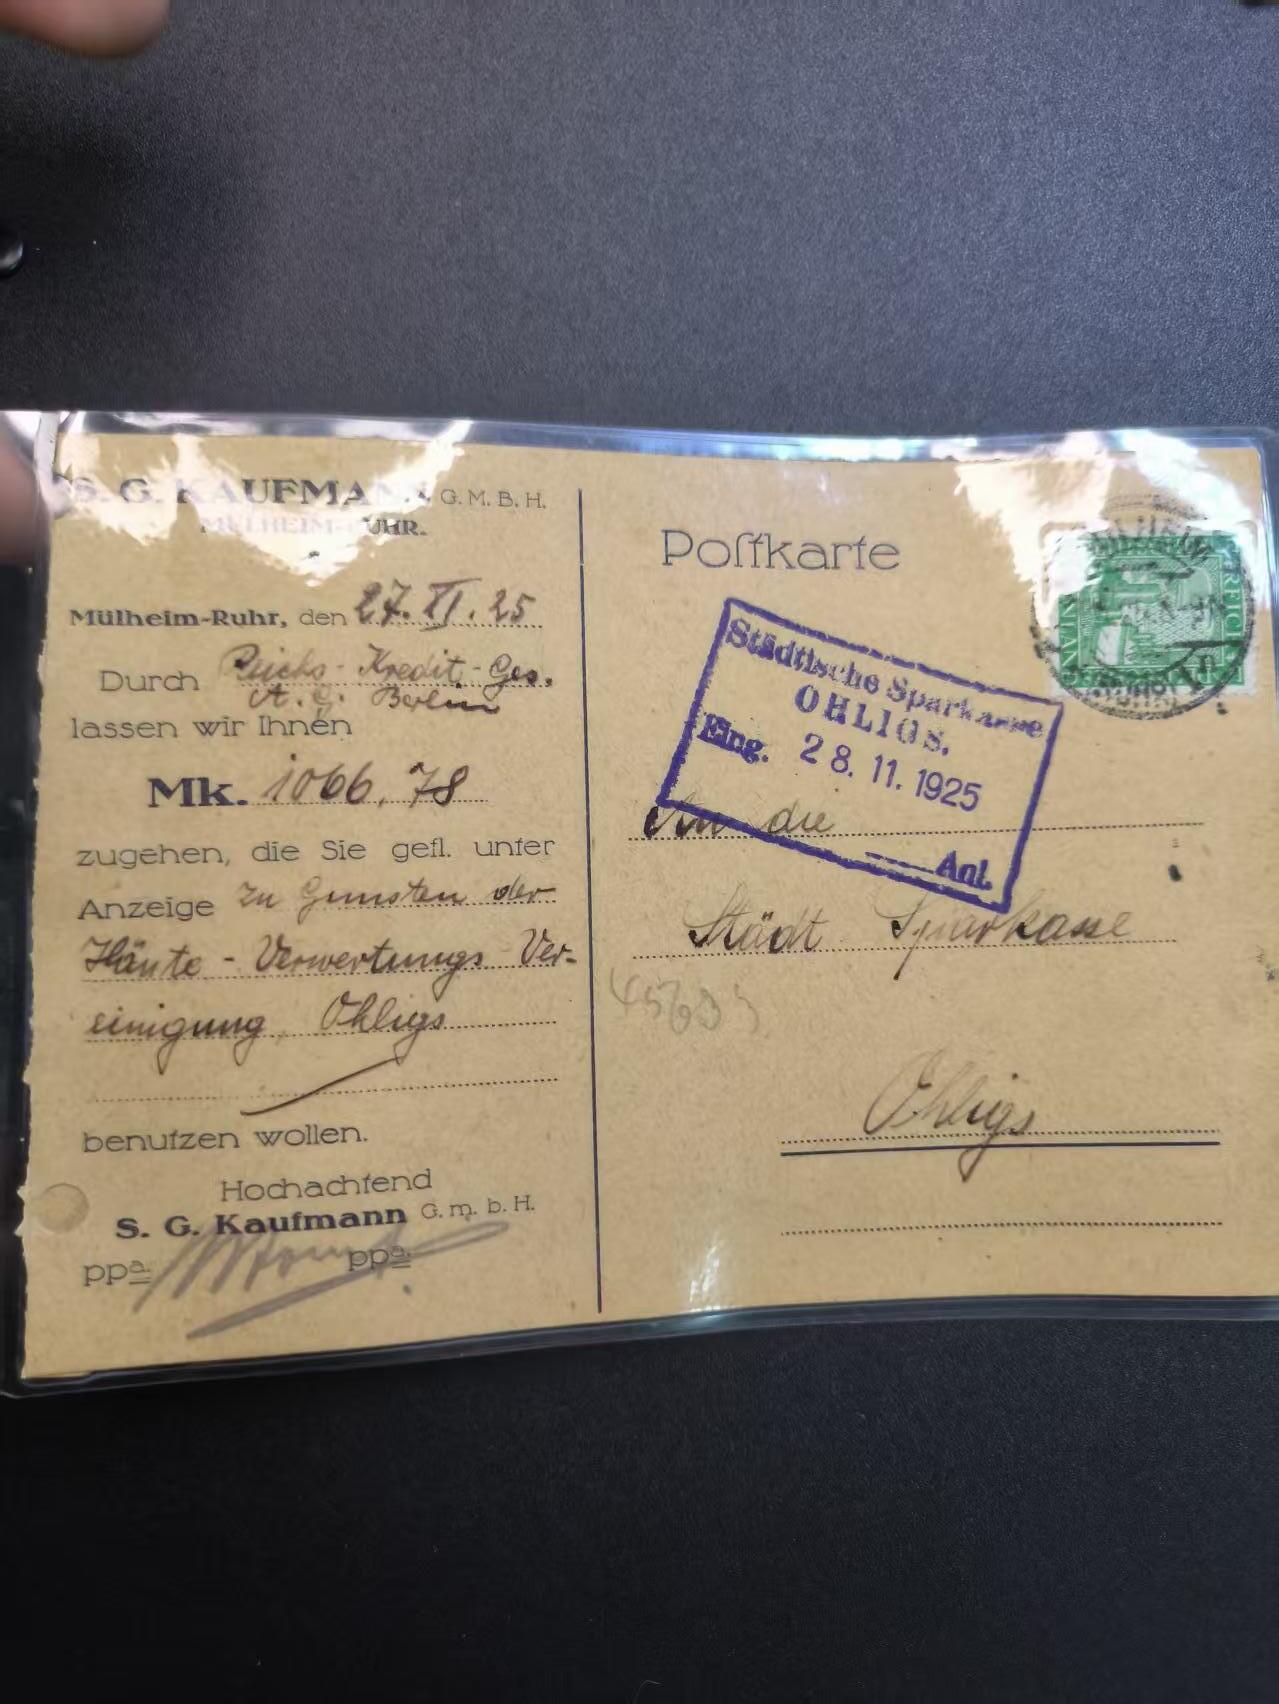 S. G. KAUFMANN G. M. B. H.
MÜLHEIM-RUHR.
Mülheim-Ruhr, den 27. XI. 25
Durch Reichs-Kredit-Ges.
A. G. Berlin
lassen wir Ihnen
Mk. 1066.78
zugehen, die Sie gefl. unter
Anzeige zu Gunsten der
Häute-Verwertungs Ver-
einigung Ohligs
benutzen wollen.
Hochachtend
S. G. Kaufmann G. m. b. H.
ppa. ppa.
Postkarte
Städtische Sparkasse
OHLIGS.
Eing. 28. 11. 1925
Anl.
An die
Städt Sparkasse
Ohligs